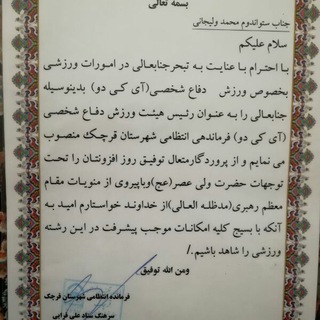 بسمه تعالی
جناب ستواندوم محمد ولیجانی
سلام علیکم
با احترام با عنایت به تبحرجنابعالی در امورات ورزشی
بخصوص ورزش دفاع شخصی(آی کی دو) بدینوسیله
جنابعالی را به عنوان رئیس هیئت ورزش دفاع شخصی
(آی کی دو) فرماندهی انتظامی شهرستان قرچک منصوب
می نمایم و از پروردگارمتعال توفیق روز افزونتان را تحت
توجهات حضرت ولی عصر(عج)وباپیروی از منویات مقام
معظم رهبری(مدظله العالی)از خداوند خواستارم امید به
آنکه با بسیج کلیه امکانات موجب پیشرفت در این رشته
ورزشی را شاهد باشیم./
ومن الله توفیق.
فرمانده انتظامی شهرستان قرچک
سرهنگ ستاد علی قزایی